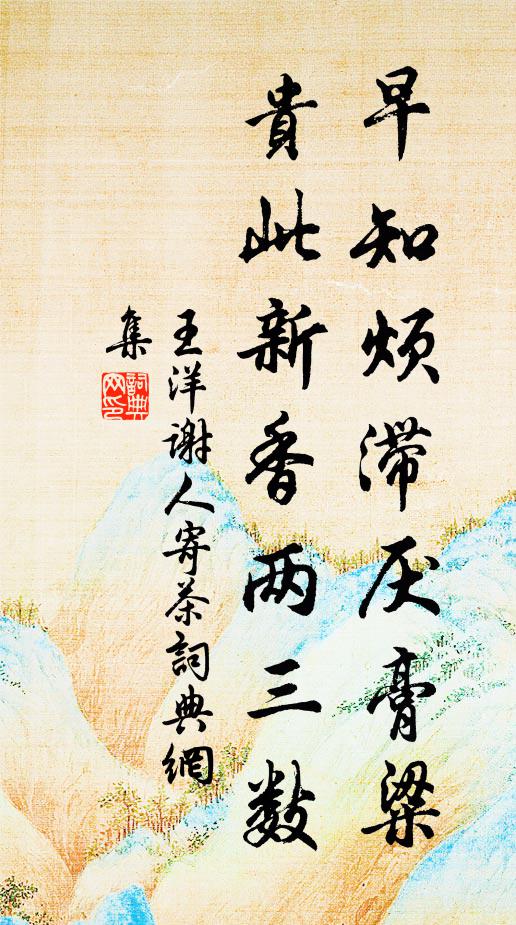 早知烦滞厌膏粱
貴此新香两三数
王洋谢人寄茶詞典網
集
詞典網印